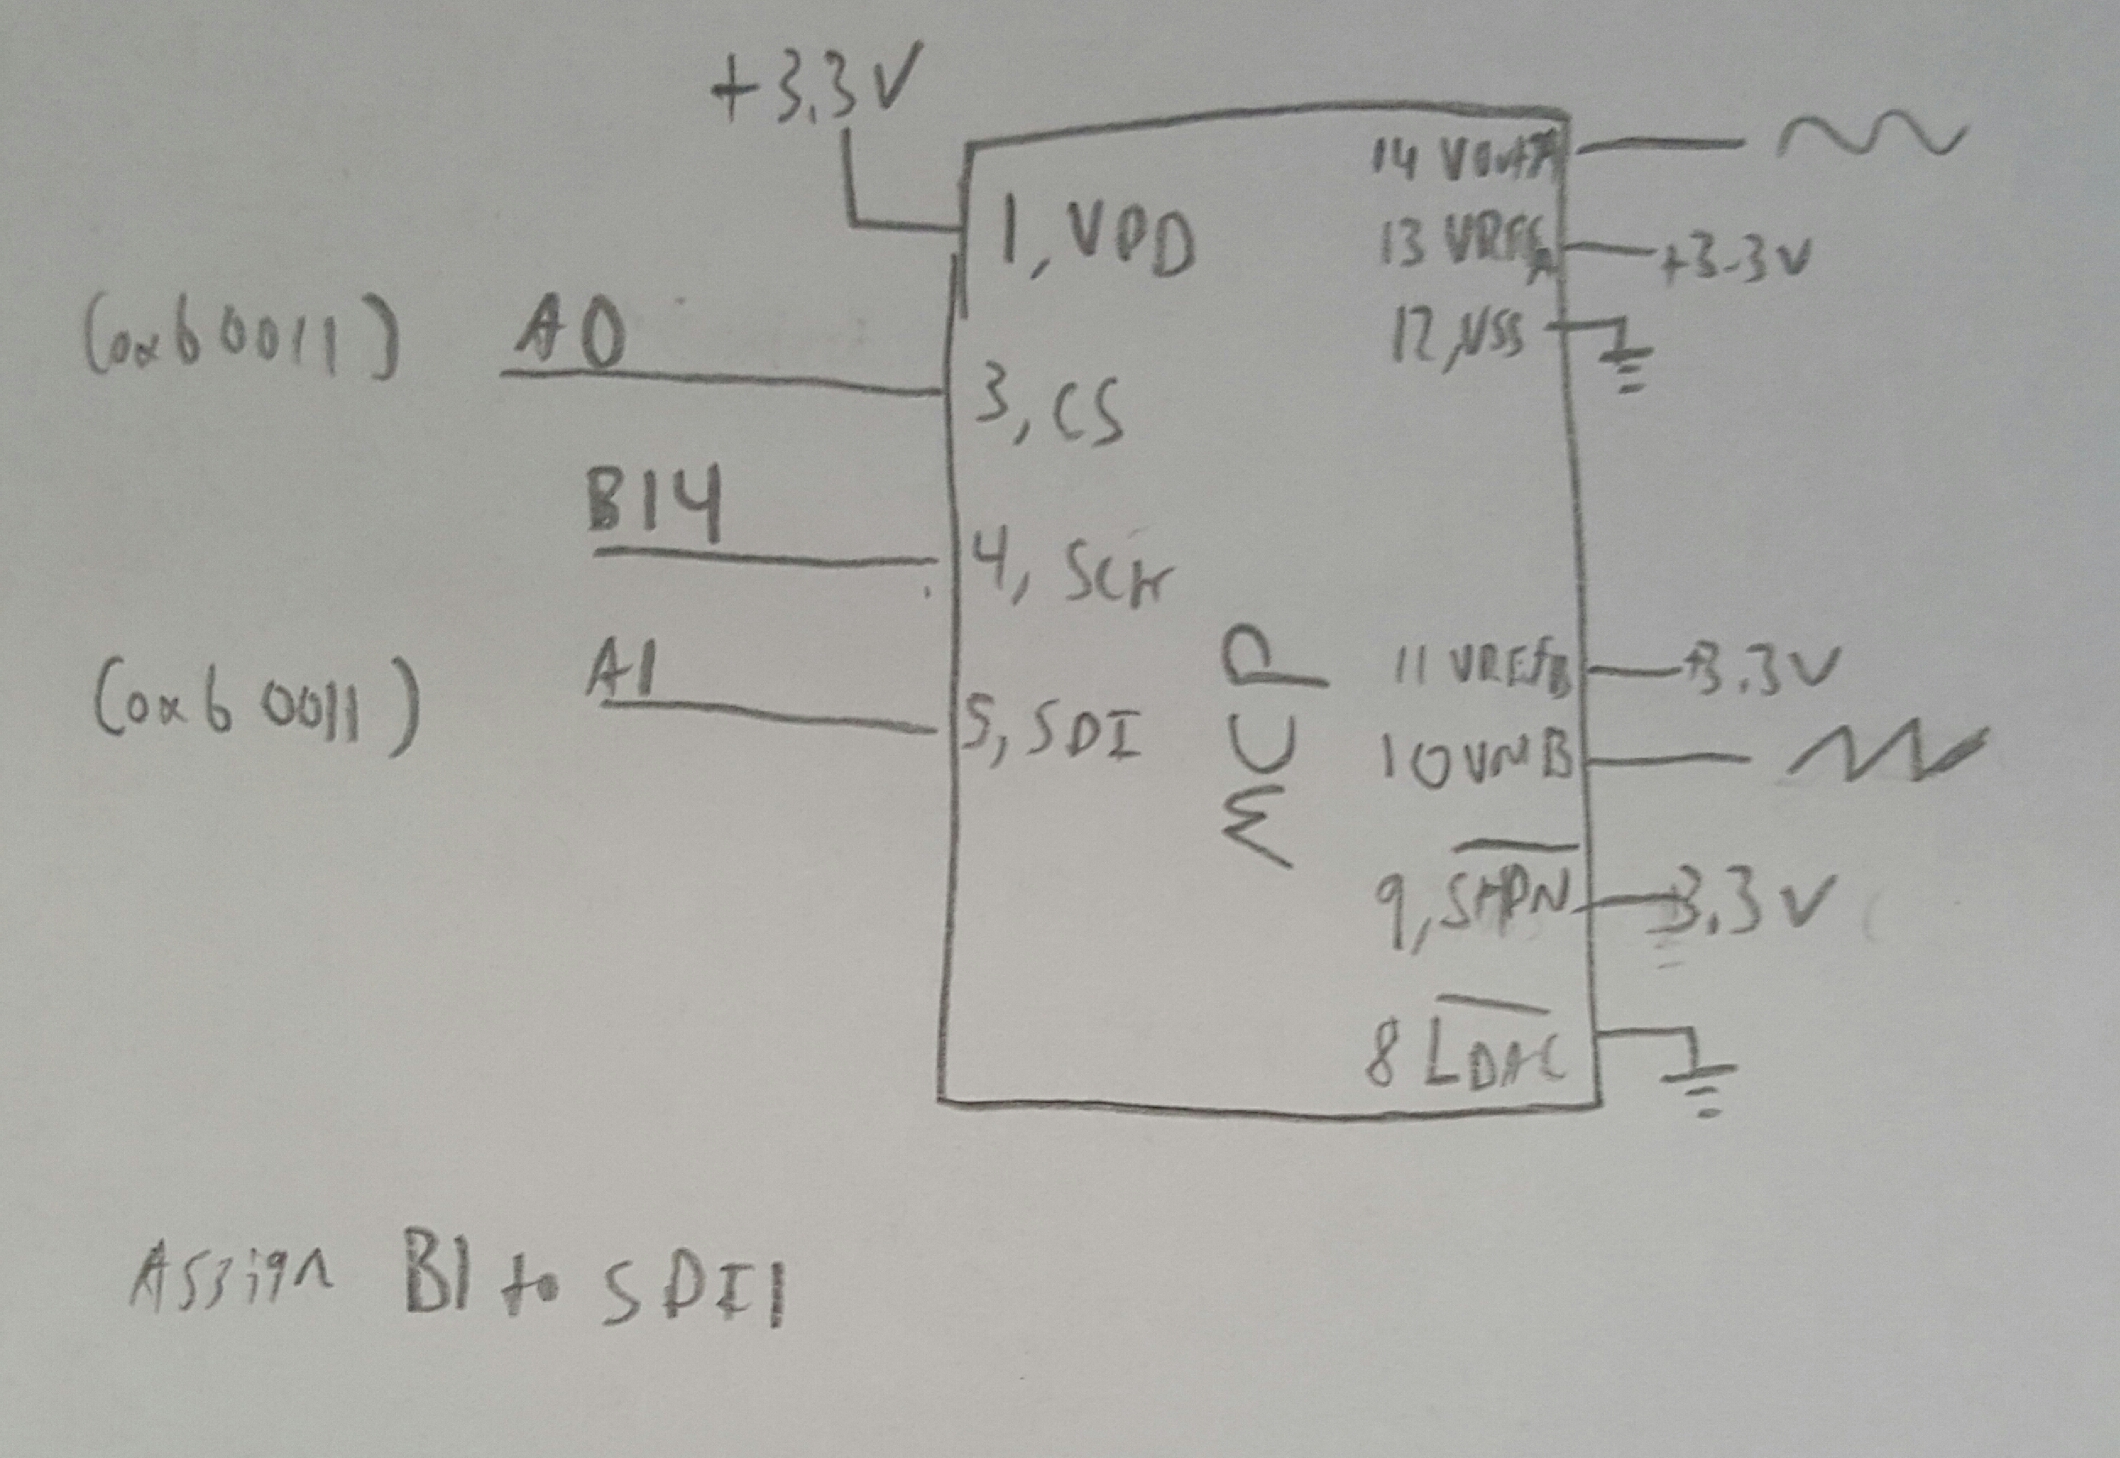 +3.3V
1, VDD
(0xb0011) A0
3, CS
B14
4, SCK
(0xb 0011) A1
5, SDI
MCP
14 VoutA
13 VREFA +3.3V
12, VSS
11 VREFB +3.3V
10 B
9, SHDN 3.3V
8 LDAC
Assign B1 to SDI1